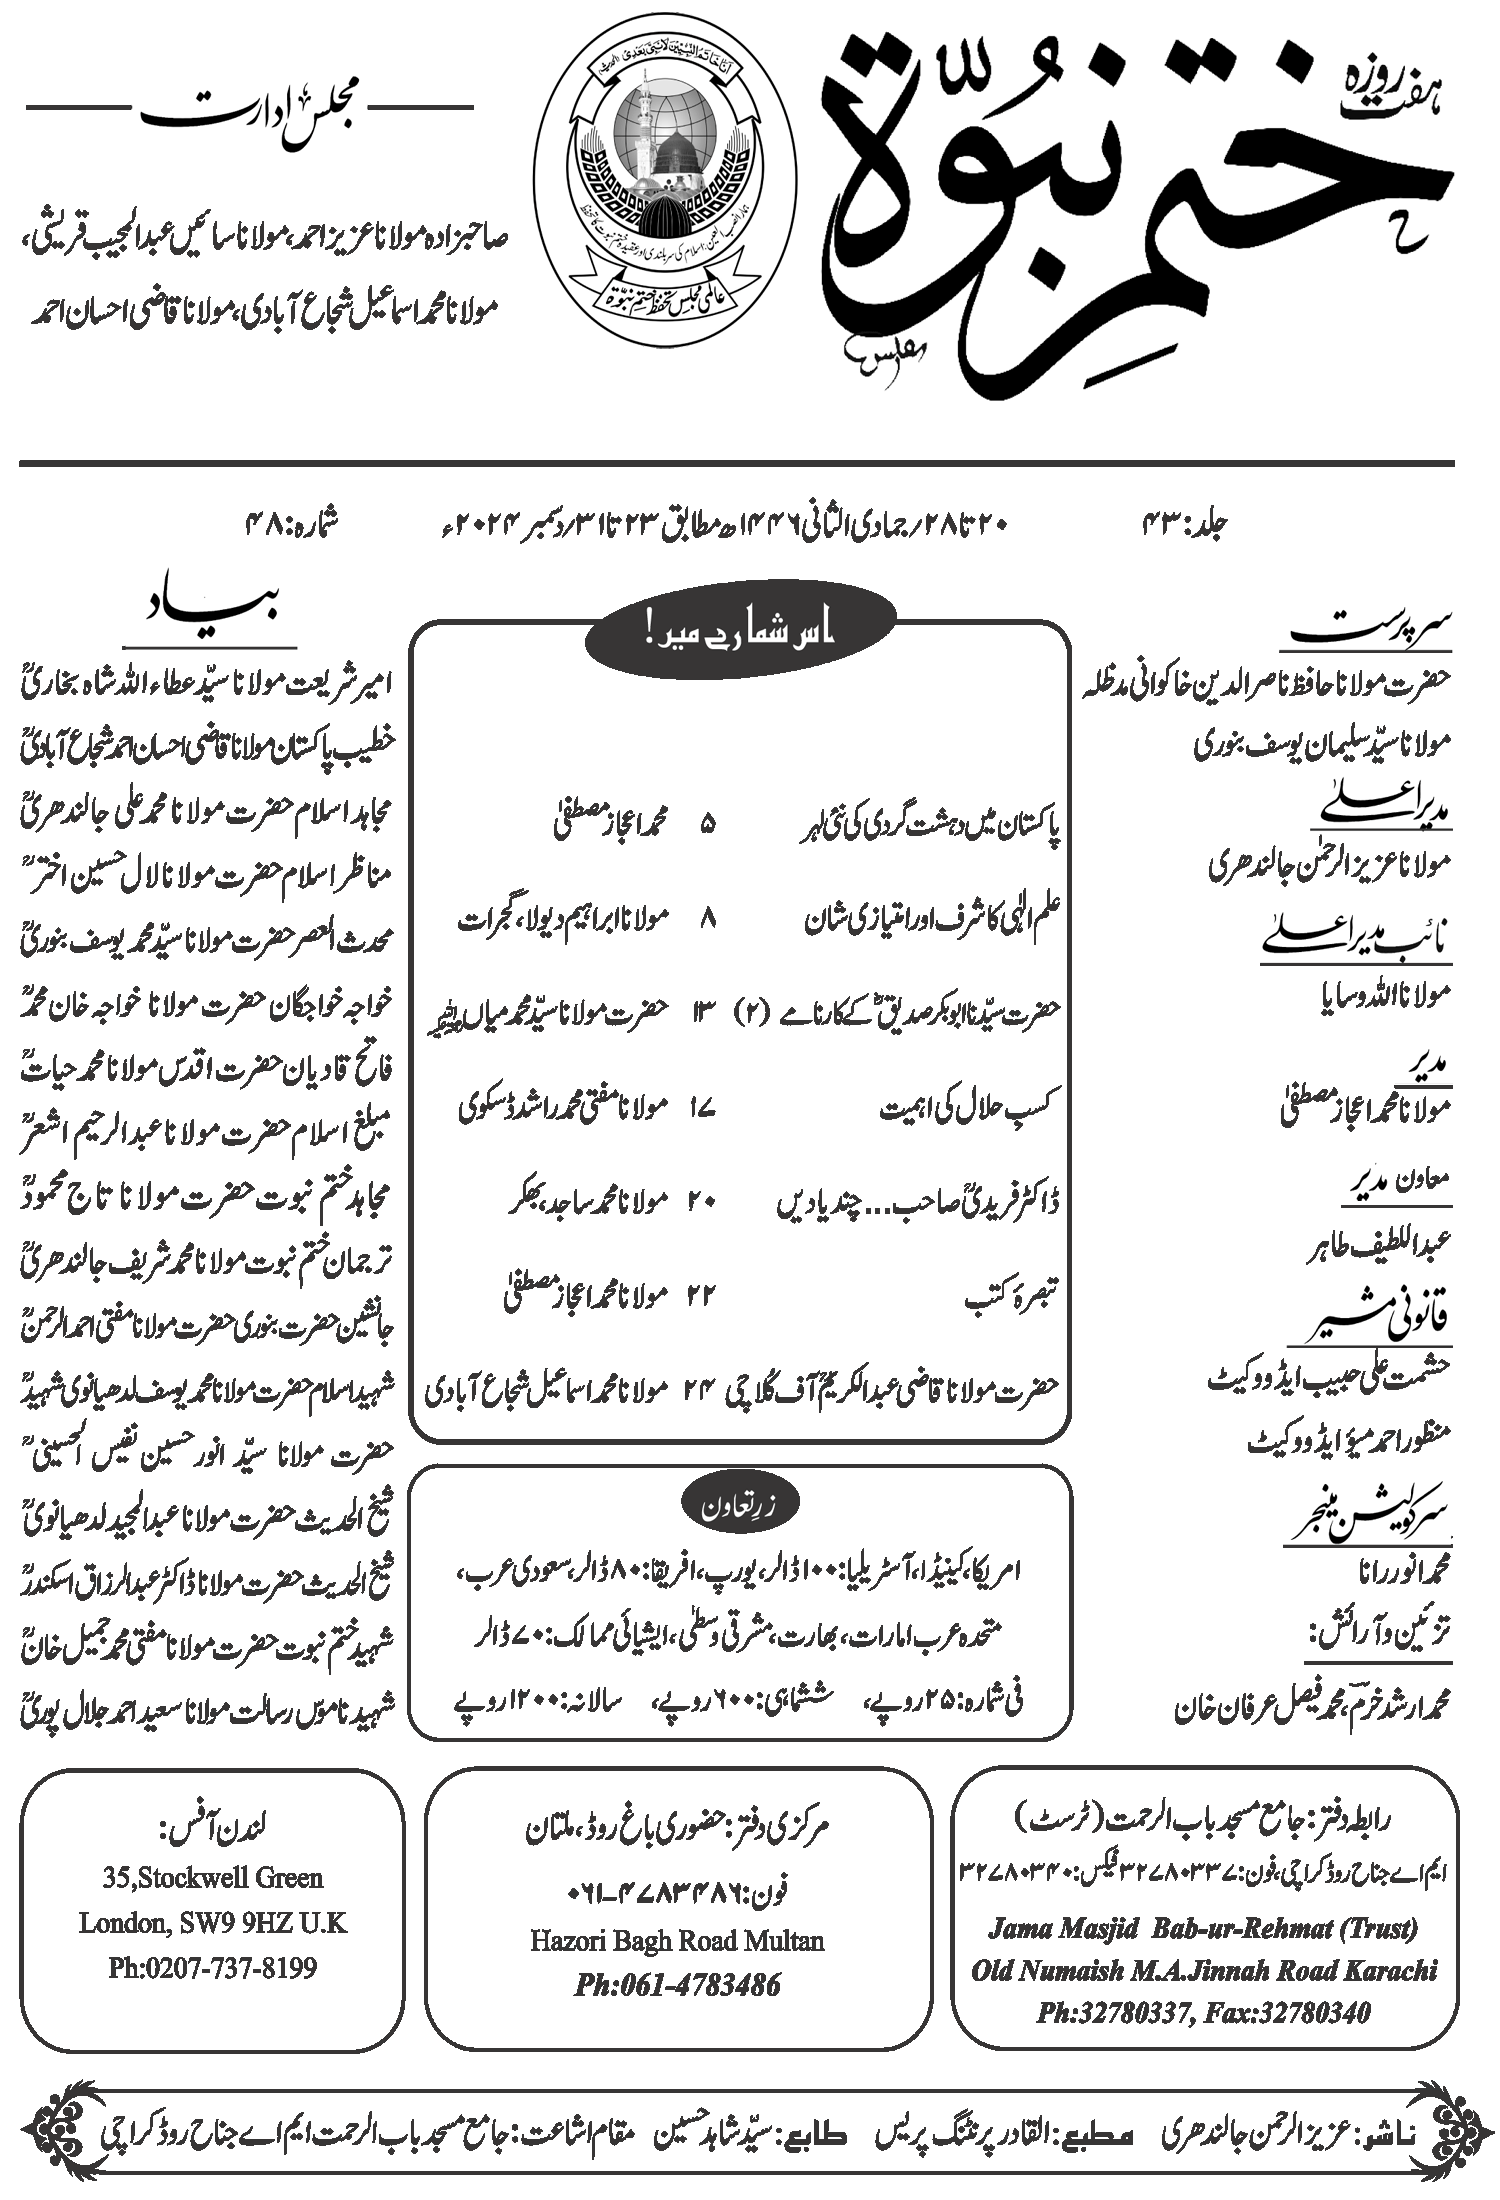 ہفت روزہ
ختم نبوّۃ
انا خاتم النبیین لا نبی بعدی (الحدیث)
عالمی مجلس تحفظ ختم نبوّۃ
مجلس ادارت
صاحبزادہ مولانا عزیز احمد، مولانا سائیں عبدالمجیب قریشی،
مولانا محمد اسماعیل شجاع آبادی، مولانا قاضی احسان احمد
جلد: ۴۳ ۲۰ تا ۲۸/ جمادی الثانی ۱۴۴۶ھ مطابق ۲۳ تا ۳۱/ دسمبر ۲۰۲۴ء شمارہ: ۴۸
سرپرست
حضرت مولانا حافظ ناصر الدین خاکوانی مدظلہ
مولانا سیّد سلیمان یوسف بنوری
مدیر اعلیٰ
مولانا عزیز الرحمٰن جالندھری
نائب مدیر اعلیٰ
مولانا اللہ وسایا
مدیر
مولانا محمد اعجاز مصطفیٰ
معاون مدیر
عبداللطیف طاہر
قانونی مشیر
حشمت علی حبیب ایڈووکیٹ
منظور احمد میؤ ایڈووکیٹ
سرکولیشن مینجر
محمد انور رانا
تزئین و آرائش:
محمد ارشد خرم، محمد فیصل عرفان خان
اس شمارے میں!
پاکستان میں دہشت گردی کی نئی لہر ۵ محمد اعجاز مصطفیٰ
علم الٰہی کا شرف اور امتیازی شان ۸ مولانا ابراہیم دیولا، گجرات
حضرت سیّدنا ابوبکر صدیقؓ کے کارنامے (۲) ۱۳ حضرت مولانا سیّد محمد میاںؒ
کسبِ حلال کی اہمیت ۱۷ مولانا مفتی محمد راشد ڈسکوی
ڈاکٹر فریدیؒ صاحب... چند یادیں ۲۰ مولانا محمد ساجد، بھکر
تبصرۂ کتب ۲۲ مولانا محمد اعجاز مصطفیٰ
حضرت مولانا قاضی عبدالکریمؒ آف کلاچی ۲۴ مولانا محمد اسماعیل شجاع آبادی
زرِتعاون
امریکا، کینیڈا، آسٹریلیا: ۱۰۰ ڈالر، یورپ، افریقا: ۸۰ ڈالر، سعودی عرب،
متحدہ عرب امارات، بھارت، مشرقی وسطٰی، ایشیائی ممالک: ۷۰ ڈالر
فی شمارہ: ۲۵ روپے، ششماہی: ۶۰۰ روپے، سالانہ: ۱۲۰۰ روپے
بیاد
امیر شریعت مولانا سیّد عطاء اللہ شاہ بخاریؒ
خطیب پاکستان مولانا قاضی احسان احمد شجاع آبادیؒ
مجاہد اسلام حضرت مولانا محمد علی جالندھریؒ
مناظر اسلام حضرت مولانا لال حسین اخترؒ
محدث العصر حضرت مولانا سیّد محمد یوسف بنوریؒ
خواجہ خواجگان حضرت مولانا خواجہ خان محمدؒ
فاتح قادیان حضرت اقدس مولانا محمد حیاتؒ
مبلغ اسلام حضرت مولانا عبدالرحیم اشعرؒ
مجاہد ختم نبوت حضرت مولانا تاج محمودؒ
ترجمان ختم نبوت مولانا محمد شریف جالندھریؒ
جانشین حضرت بنوری حضرت مولانا مفتی احمد الرحمنؒ
شہید اسلام حضرت مولانا محمد یوسف لدھیانوی شہیدؒ
حضرت مولانا سیّد انور حسین نفیس الحسینیؒ
شیخ الحدیث حضرت مولانا عبدالمجید لدھیانویؒ
شیخ الحدیث حضرت مولانا ڈاکٹر عبدالرزاق اسکندرؒ
شہید ختم نبوت حضرت مولانا مفتی محمد جمیل خانؒ
شہید ناموس رسالت مولانا سعید احمد جلال پوریؒ
رابطہ دفتر: جامع مسجد باب الرحمت (ٹرسٹ)
ایم اے جناح روڈ کراچی، فون: ۳۲۷۸۰۳۳۷ فیکس: ۳۲۷۸۰۳۴۰
Jama Masjid Bab-ur-Rehmat (Trust)
Old Numaish M.A.Jinnah Road Karachi
Ph:32780337, Fax:32780340
مرکزی دفتر: حضوری باغ روڈ، ملتان
فون: ۰۶۱-۴۷۸۳۴۸۶
Hazori Bagh Road Multan
Ph:061-4783486
لندن آفس:
35,Stockwell Green
London, SW9 9HZ U.K
Ph:0207-737-8199
ناشر: عزیز الرحمن جالندھری مطبع: القادر پرنٹنگ پریس طابع: سیّد شاہد حسین مقام اشاعت: جامع مسجد باب الرحمت ایم اے جناح روڈ کراچی